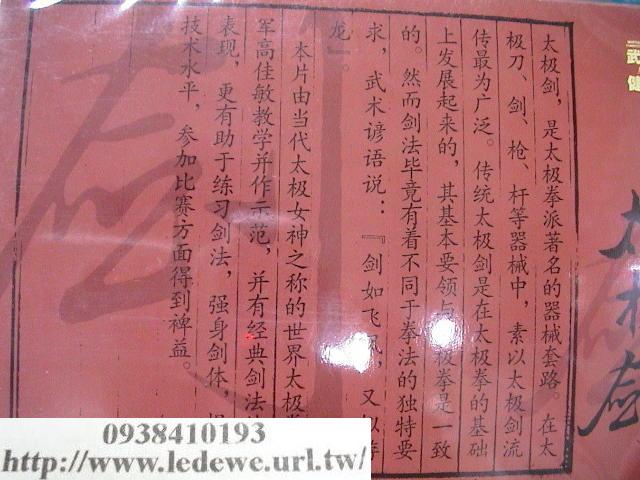 武
健
太
术
剑
太极剑，是太极拳派著名的器械套路。在太
极刀、剑、枪、杆等器械中，素以太极剑流
传最为广泛。传统太极剑是在太极拳的基础
上发展起来的，其基本要领与极拳是一致
的。然而剑法毕竟有着不同于拳法的独特要
求，武术谚语说：『剑如飞凤，又
龙』。
本片由当代太极女神之称的世界太极
军高佳敏教学并作示范，并有经典剑法
表现，更有助于练习剑法，强身剑体，
技术水平，参加比赛方面得到裨益。
0938410193
http://www.ledewe.url.tw/